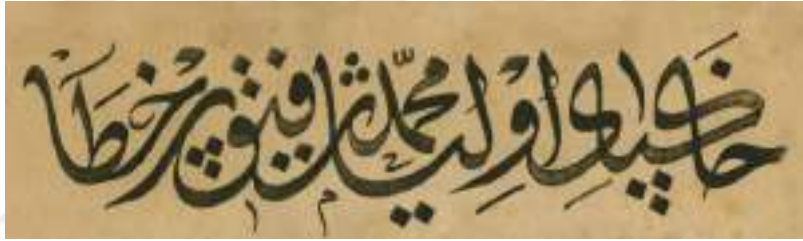 خاكپاى اوليا محمد شفيق پرخطا